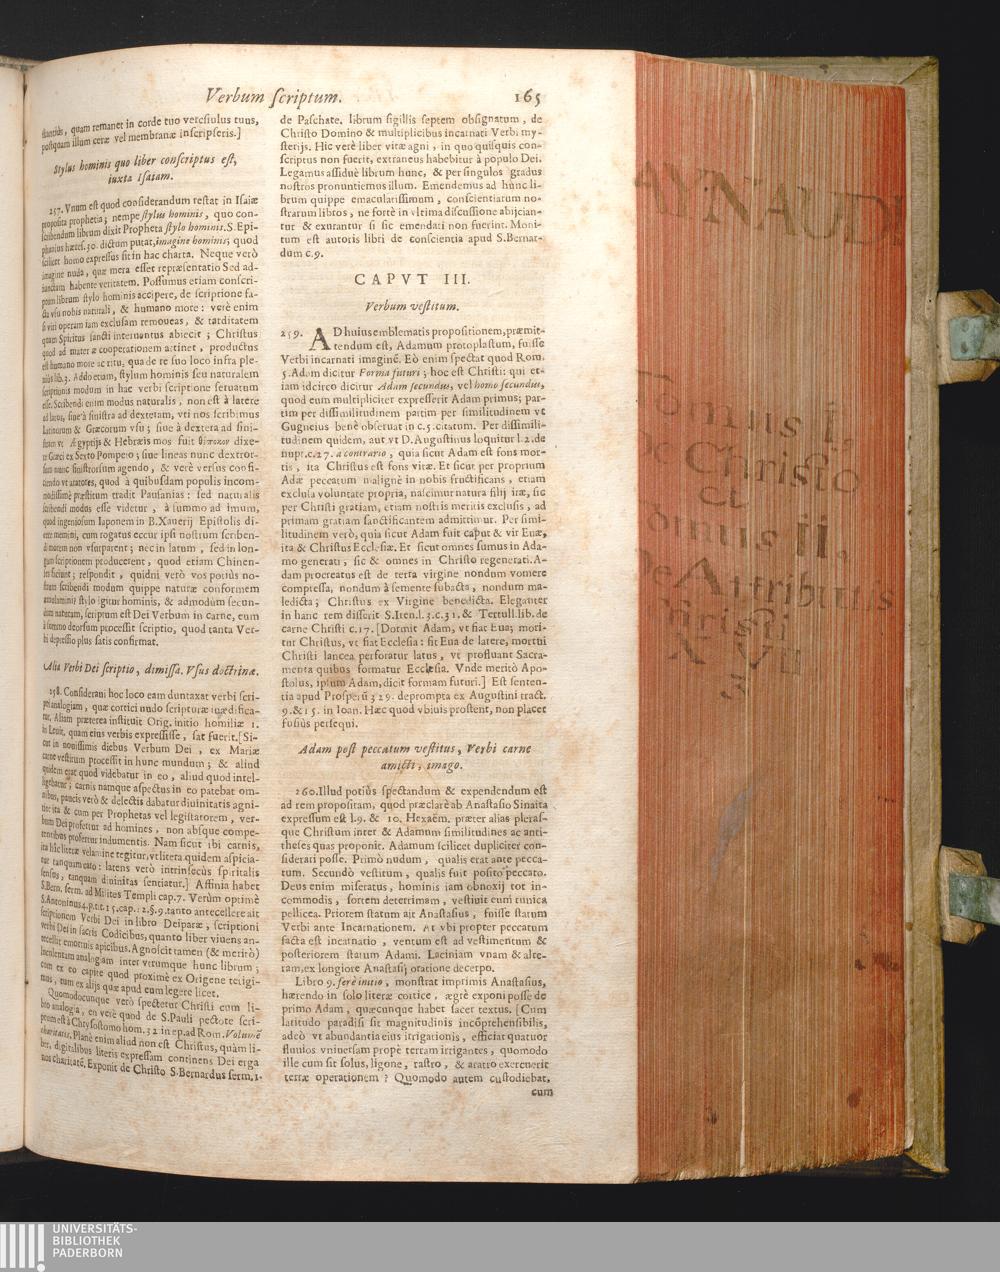 Verbum scriptum. 165
stantiùs, quam remanet in corde tuo versiulus tuus,
postquam illum ceræ vel membranæ inscripseris.]
Stylus hominis quo liber conscriptus est,
iuxta Isaiam.
257. Vnum est quod considerandum restat in Isaiæ
proposita prophetia; nempe stylus hominis, quo con-
scribendum librum dixit Propheta stylo hominis. S. Epi-
phanius hæres. 30. dictum putat, imagine hominis; quod
scilicet homo expressus sit in hac charta. Neque verò
imagine nuda, quæ mera esset repræsentatio Sed ad-
iunctam habente veritatem. Possumus etiam conscri-
ptum librum stylo hominis accipere, de scriptione fa-
cta vsu nobis naturali, & humano more: verè enim
si viri operam iam exclusam remoueas, & tarditatem
quam Spiritus sancti interuentus abiecit; Christus
quod ad materæ cooperationem attinet, productus
est humano more ac ritu, qua de re suo loco infra ple-
niùs lib. 3. Addo etiam, stylum hominis seu naturalem
scriptionis modum in hac verbi scriptione seruatum
esse. Scribendi enim modus naturalis, non est à latere
ad latus, siue à sinistra ad dexteram, vti nos scribimus
Latinorum & Græcorum vsu; siue à dextera ad sini-
stram vt Ægyptijs & Hebræis mos fuit
re Græci ex Sexto Pompeio; siue lineas nunc dextror-
sum nunc sinistrorsum agendo, & verè versus confi-
ciendo vt aratores, quod à quibusdam populis incom-
modissimè præstitum tradit Pausanias: sed naturalis
scribendi modus esse videtur, à summo ad imum,
quod ingeniosum Iaponem in B. Xauerij Epistolis di-
cere memini, cum rogatus eccur ipsi nostrum scriben-
di morem non vsurparent; nec in latum, sed in lon-
gum scriptionem producerent, quod etiam Chinen-
ses faciunt; respondit, quidni verò vos potiùs no-
strum scribendi modum quippe naturæ conformem
æmulamini? stylo igitur hominis, & admodùm secun-
dum naturam, scriptum est Dei Verbum in carne, cum
à summo deorsum processit scriptio, quod tanta Ver-
bi depressio plus satis confirmat.
Alia Verbi Dei scriptio, dimissa. Vsus doctrinæ.
258. Considerani hoc loco eam duntaxat verbi scri-
pti analogiam, quæ cortici nudo scripturæ superædifica-
tur, Aliam præterea instituit Orig. initio homiliæ 1.
in Leuit, quam eius verbis expressisse, sat fuerit. [Si-
cut in nouissimis diebus Verbum Dei, ex Mariæ
carne vestitum processit in hunc mundum; & aliud
quidem erat quod videbatur in eo, aliud quod intel-
ligebatur; carnis namque aspectus in eo patebat om-
nibus, paucis verò & delectis dabatur diuinitatis agni-
tio: ita & cum per Prophetas vel legislatorem, ver-
bum Dei profertur ad homines, non absque compe-
tentibus profertur indumentis. Nam sicut ibi carnis,
ita hîc literæ velamine tegitur, vt litera quidem aspicia-
tur tanquam caro: latens verò intrinsecùs spiritalis
sensus, tanquam diuinitas sentiatur.] Affinia habet
S. Bern. serm. ad Milites Templi cap. 7. Verùm optimè
S. Antoninus 4. p. tit. 15. cap. 12. §. 9. tanto antecellere ait
scriptionem Verbi Dei in libro Deiparæ, scriptioni
verbi Dei in sacris Codicibus, quanto liber viuens an-
tecellit emortuis apicibus. Agnoscit tamen (& meritò)
luculentam analogiam inter vtrumque hunc librum;
cum ex eo capite quod proximè ex Origene tetigi-
mus, tum ex alijs quæ apud eum legere licet.
Quomodocunque verò spectetur Christi cum li-
bro analogia, en verè quod de S. Pauli pectore scri-
ptum est à Chrysostomo hom. 32 in ep. ad Rom. Volumē
charitatis. Planè enim aliud non est Christus, quàm li-
ber, digitalibus literis expressam continens Dei erga
nos charitatē. Exponit de Christo S. Bernardus serm. 1.
de Paschate, librum sigillis septem obsignatum, de
Christo Domino & multiplicibus incarnati Verbi my-
sterijs. Hic verè liber vitæ agni, in quo quisquis con-
scriptus non fuerit, extraneus habebitur à populo Dei.
Legamus assiduè librum hunc, & per singulos gradus
nostros pronuntiemus illum. Emendemus ad hunc li-
brum quippe emaculatissimum, conscientiarum no-
strarum libros, ne fortè in vltima discussione abijcian-
tur & exurantur si sic emendati non fuerint. Moni-
tum est autoris libri de conscientia apud S. Bernar-
dum c. 9.
CAPVT III.
Verbum vestitum.
259. AD huius emblematis propositionem, præmit-
tendum est, Adamum protoplastum, fuisse
Verbi incarnati imaginē. Eò enim spectat quod Rom.
5. Adam dicitur Forma futuri; hoc est Christi: qui et-
iam idcirco dicitur Adam secundus, vel homo secundus,
quod eum multipliciter expresserit Adam primus; par-
tim per dissimilitudinem partim per similitudinem vt
Gagneius benè obseruat in c. 5. citatum. Per dissimili-
tudinem quidem, aut vt D. Augustinus loquitur l. 2. de
nupt. c. 27. a contrario, quia sicut Adam est fons mor-
tis, ita Christus est fons vitæ. Et sicut per proprium
Adæ peccatum malignè in nobis fructificans, etiam
exclusa voluntate propria, nascimur natura filij iræ, sic
per Christi gratiam, etiam nostris meritis exclusis, ad
primam gratiam sanctificantem admittimur. Per simi-
litudinem verò, quia sicut Adam fuit caput & vir Euæ,
ita & Christus Ecclesiæ. Et sicut omnes sumus in Ada-
mo generati, sic & omnes in Christo regenerati. A-
dam procreatus est de terra virgine nondum vomere
compressa, nondum à semente subacta, nondum ma-
ledicta; Christus ex Virgine benedicta. Eleganter
in hanc rem disserit S. Iren. l. 3. c. 31. & Tertull. lib. de
carne Christi c. 17. [Dormit Adam, vt fiat Eua; mori-
tur Christus, vt fiat Ecclesia: fit Eua de latere, mortui
Christi lancea perforatur latus, vt profluant Sacra-
menta quibus formatur Ecclesia. Vnde meritò Apo-
stolus, ipsum Adam, dicit formam futuri.] Est senten-
tia apud Prosperū 329. deprompta ex Augustini tract.
9. & 15. in Ioan. Hæc quod vbiuis prostent, non placet
fusiùs persequi.
Adam post peccatum vestitus, Verbi carne
amicti, imago.
260. Illud potiùs spectandum & expendendum est
ad rem propositam, quod præclarè ab Anastasio Sinaita
expressum est l. 9. & 10. Hexaëm. præter alias pleras-
que Christum inter & Adamum similitudines ac anti-
theses quas proponit. Adamum scilicet dupliciter con-
siderari posse. Primò nudum, qualis erat ante pecca-
tum. Secundò vestitum, qualis fuit posito peccato.
Deus enim miseratus, hominis iam obnoxij tot in-
commodis, sortem deterrimam, vestiuit eum tunica
pellicea. Priorem statum ait Anastasius, fuisse statum
Verbi ante Incarnationem. At vbi propter peccatum
facta est incarnatio, ventum est ad vestimentum &
posteriorem statum Adami. Laciniam vnam & alte-
ram, ex longiore Anastasij oratione decerpo.
Libro 9. ferè initio, monstrat imprimis Anastasius,
hærendo in solo literæ cortice, ægrè exponi posse de
primo Adam, quæcunque habet sacer textus. [Cum
latitudo paradisi sit magnitudinis incōprehensibilis,
adeò vt abundantia eius irrigationis, efficiat quatuor
fluuios vniuersam propè terram irrigantes, quomodo
ille cum sit solus, ligone, rastro, & aratro exercuerit
terræ operationem? Quomodo autem custodiebat,
cum
AYNAUDI
Tomus I.
De Christo
et
Tomus ii.
De Attributis
Christi
X VII
3
UNIVERSITÄTS-
BIBLIOTHEK
PADERBORN